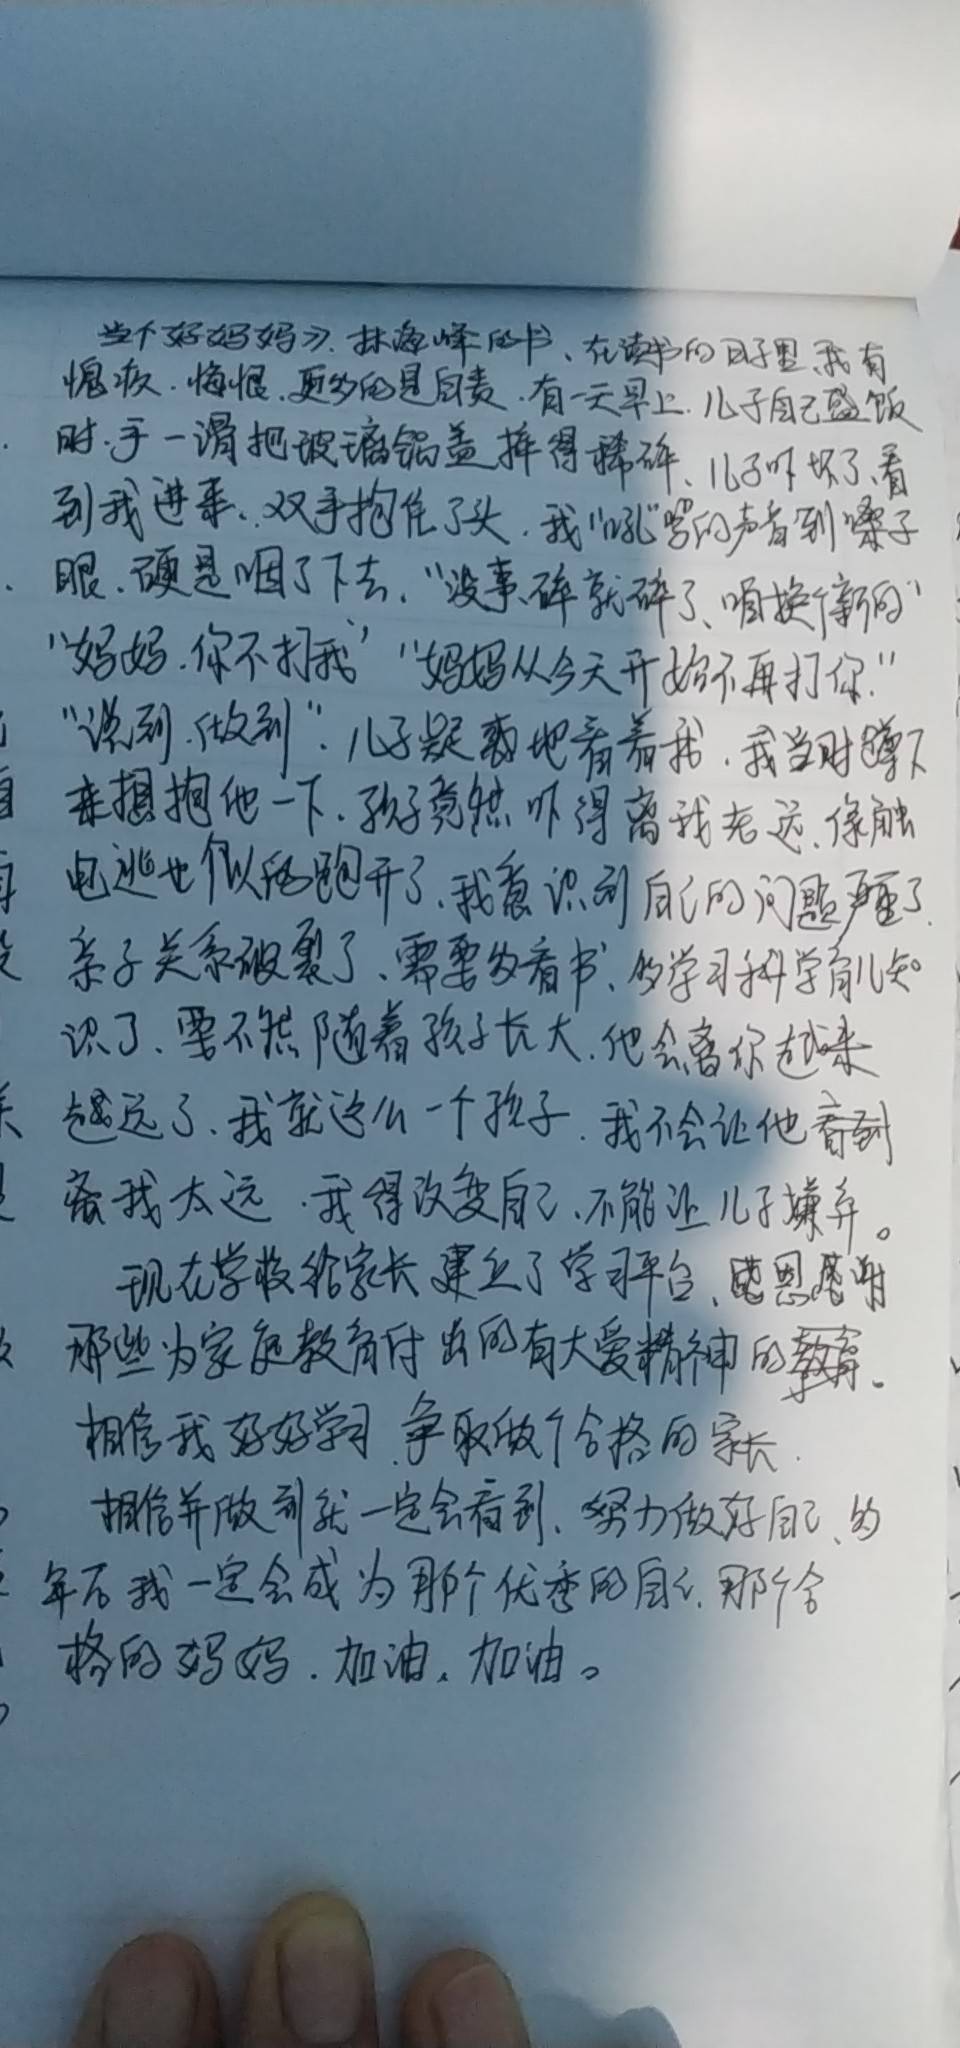 当个好妈妈》林海峰的书、在读书的日子里、我有
愧疚、悔恨、更多的是自责、有一天早上、儿子自己盛饭
时、手一滑把玻璃锅盖摔得稀碎、儿子吓坏了、看
到我进来、双手抱住了头、我"吼"的声音到嗓子
眼、硬是咽了下去、"没事、碎就碎了、咱换个新的"
"妈妈、你不打我" "妈妈从今天开始不再打你"
"说到、做到"、儿子疑惑地看着我、我当时蹲下
来想抱他一下、孩子竟然吓得离我老远、像触
电逃也似的跑开了、我意识到自己的问题严重了、
亲子关系破裂了、需要多看书、多学习科学育儿知
识了、要不然随着孩子长大、他会离你越来
越远了、我就这么一个孩子、我不会让他看到
离我太远、我得改变自己、不能让儿子嫌弃。
现在学校给家长建立了学习平台、感恩感谢
那些为家庭教育付出的有大爱精神的教育。
相信我好好学习、争取做个合格的家长、
相信并做到就一定会看到、努力做好自己、多
年后我一定会成为那个优秀的自己、那个合
格的妈妈、加油、加油。